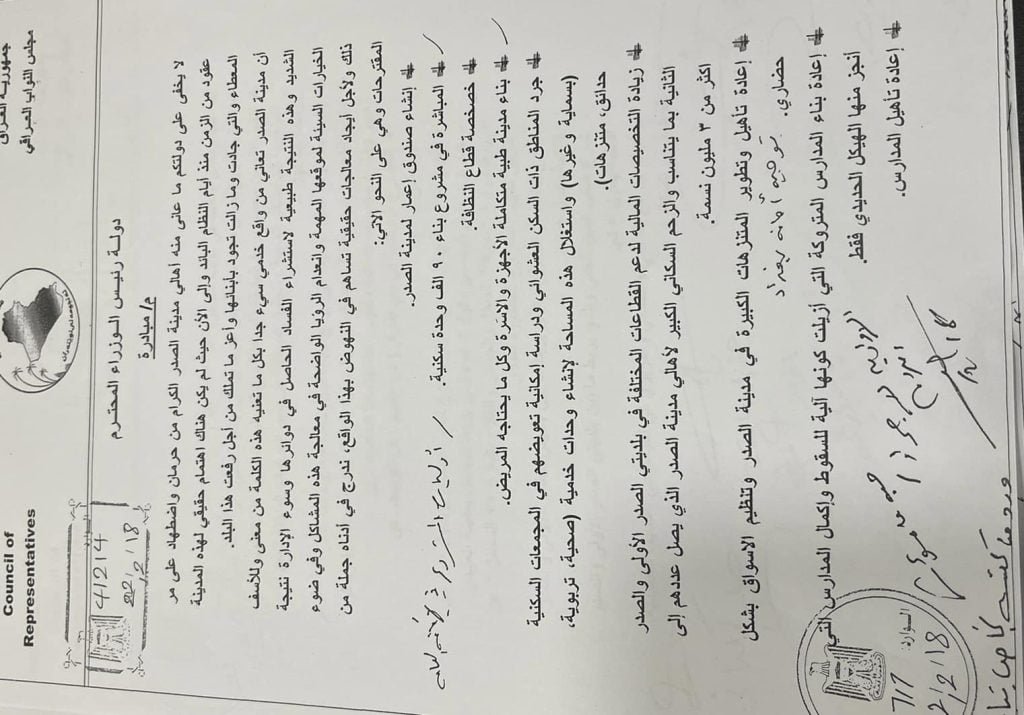 جمهورية العراق
مجلس النواب العراقي
Council of
Representatives
41214
22/2/18
دولة رئيس الوزراء المحترم
م/ مبادرة
لا يخفى على دولتكم ما عانى منه أهالي مدينة الصدر الكرام من حرمان واضطهاد على مر
عقود من الزمن منذ أيام النظام البائد وإلى الآن حيث لم يكن هناك اهتمام حقيقي لهذه المدينة
المعطاء والتي جادت وما زالت تجود بأبنائها وأعز ما تملك من أجل رفعت هذا البلد.
أن مدينة الصدر تعاني من واقع خدمي سيء جدا بكل ما تعنيه هذه الكلمة من معنى وللأسف
الشديد وهذه النتيجة طبيعية لاستشراء الفساد الحاصل في دوائرها وسوء الإدارة نتيجة
الخيارات السيئة لموقعها المهمة وانعدام الرؤيا الواضحة في معالجة هذه المشاكل وفي ضوء
ذلك ولأجل ايجاد معالجات حقيقية تساهم في النهوض بهذا الواقع، ندرج في أدناه جملة من
المقترحات وهي على النحو الاتي:
# إنشاء صندوق إعمار لمدينة الصدر.
# المباشرة في مشروع بناء ٩٠ الف وحدة سكنية.
# خصخصة قطاع النظافة.
# بناء مدينة طبية متكاملة الأجهزة والاسرة وكل ما يحتاجه المريض.
# جرد المناطق ذات السكن العشوائي ودراسة إمكانية تعويضهم في المجمعات السكنية
(بسماية وغيرها) واستغلال هذه المساحة لإنشاء وحدات خدمية (صحية، تربوية،
حدائق، متنزهات).
# زيادة التخصيصات المالية لدعم القطاعات المختلفة في بلديتي الصدر الأولى والصدر
الثانية بما يتناسب والزخم السكاني الكبير لأهالي مدينة الصدر الذي يصل عددهم إلى
اكثر من ٣ مليون نسمة.
# إعادة تأهيل وتطوير المتنزهات الكبيرة في مدينة الصدر وتنظيم الاسواق بشكل
حضاري.
توجيه أمانة بغداد
# إعادة بناء المدارس المتروكة التي أزيلت كونها آلية للسقوط وإكمال المدارس التي
أنجز منها الهيكل الحديدي فقط.
# إعادة تأهيل المدارس.
الواردة
717
2/2/18